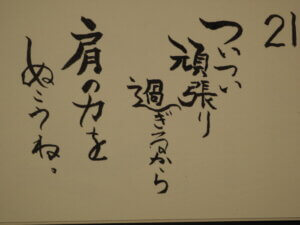 21
ついつい
頑張り
過ぎるから
肩の力を
ぬこうね。